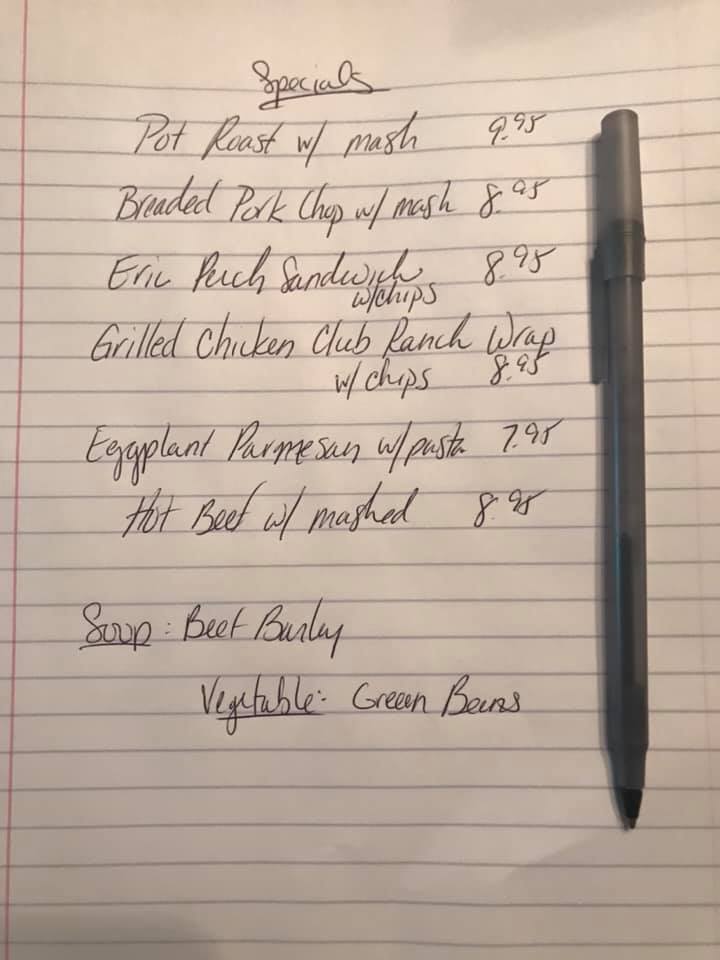 Specials
Pot Roast w/ mash 9.95
Breaded Pork Chop w/ mash 8.95
Eric Perch Sandwich 8.95
w/chips
Grilled Chicken Club Ranch Wrap
w/ chips 8.95
Eggplant Parmesan w/pasta 7.95
Hot Beef w/ mashed 8.95
Soup: Beef Barley
Vegetable: Green Beans